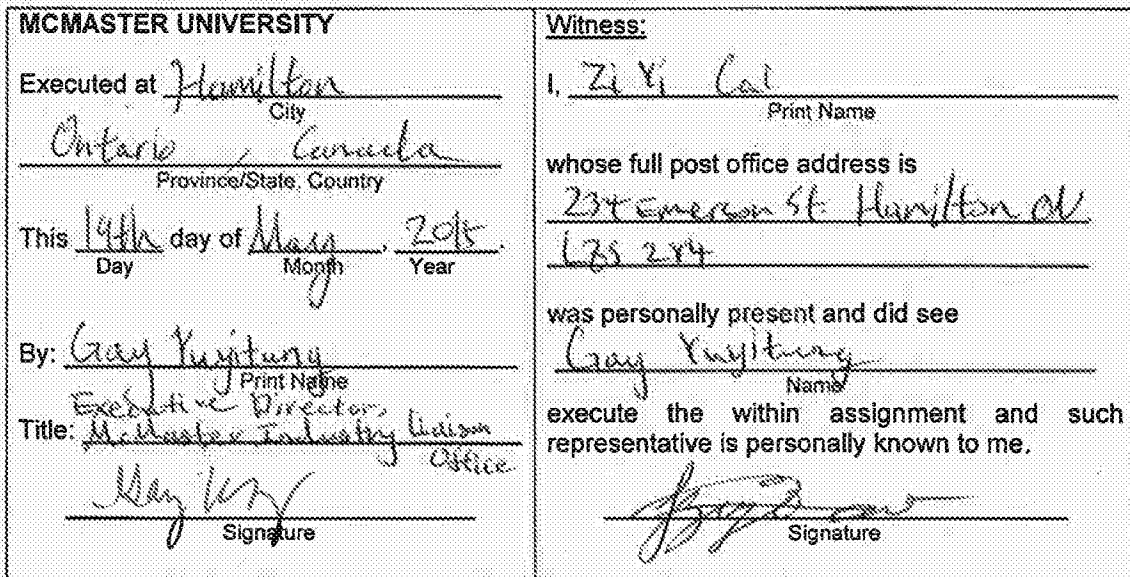 MCMASTER UNIVERSITY
Executed at Hamilton
City
Ontario, Canada
Province/State, Country
This 19th day of May, 2015.
Day Month Year
By: Gay Yuyitung
Print Name
Executive Director,
Title: McMaster Industry Liaison
Office
Signature
Witness:
I, Zi Yi Cai
Print Name
whose full post office address is
234 Emerson St. Hamilton ON
L8S 2Y4
was personally present and did see
Gay Yuyitung
Name
execute the within assignment and such
representative is personally known to me.
Signature